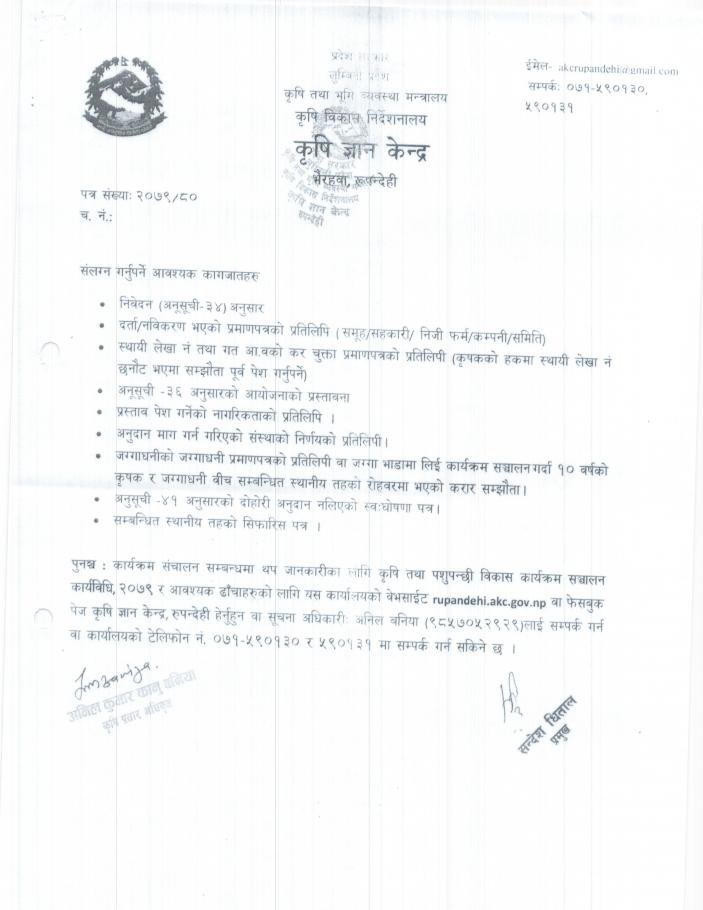 प्रदेश सरकार
लुम्बिनी प्रदेश
कृषि तथा भूमि व्यवस्था मन्त्रालय
कृषि विकास निर्देशनालय
कृषि ज्ञान केन्द्र
भैरहवा, रूपन्देही
ईमेल- akcrupandehi@gmail.com
सम्पर्क: ०७१-५९०१३०,
५९०१३१
पत्र संख्या: २०७९/८०
च. नं.:
संलग्न गर्नुपर्ने आवश्यक कागजातहरु
• निवेदन (अनूसूची-३४) अनुसार
• दर्ता/नविकरण भएको प्रमाणपत्रको प्रतिलिपि ( समूह/सहकारी/ निजी फर्म/कम्पनी/समिति)
• स्थायी लेखा नं तथा गत आ.वको कर चुक्ता प्रमाणपत्रको प्रतिलिपी (कृषकको हकमा स्थायी लेखा नं
छनौट भएमा सम्झौता पूर्व पेश गर्नुपर्ने)
• अनूसूची -३६ अनुसारको आयोजनाको प्रस्तावना
• प्रस्ताव पेश गर्नेको नागरिकताको प्रतिलिपि ।
• अनुदान माग गर्न गरिएको संस्थाको निर्णयको प्रतिलिपी।
• जग्गाधनीको जग्गाधनी प्रमाणपत्रको प्रतिलिपी वा जग्गा भाडामा लिई कार्यक्रम सञ्चालन गर्दा १० वर्षको
कृषक र जग्गाधनी बीच सम्बन्धित स्थानीय तहको रोहवरमा भएको करार सम्झौता।
• अनुसूची -४१ अनुसारको दोहोरी अनुदान नलिएको स्व:घोषणा पत्र।
• सम्बन्धित स्थानीय तहको सिफारिस पत्र ।
पुनश्च : कार्यक्रम संचालन सम्बन्धमा थप जानकारीका लागि कृषि तथा पशुपन्छी विकास कार्यक्रम सञ्चालन
कार्यविधि, २०७९ र आवश्यक ढाँचाहरुको लागि यस कार्यालयको वेभसाईट rupandehi.akc.gov.np वा फेसबुक
पेज कृषि ज्ञान केन्द्र, रुपन्देही हेर्नुहुन वा सूचना अधिकारी: अनिल बनिया (९८५७०५२९२९)लाई सम्पर्क गर्न
वा कार्यालयको टेलिफोन नं. ०७१-५९०१३० र ५९०१३१ मा सम्पर्क गर्न सकिने छ ।
अनिल कुमार कानु बनिया
कृषि प्रसार अधिकृत
सन्देश धिताल
प्रमुख